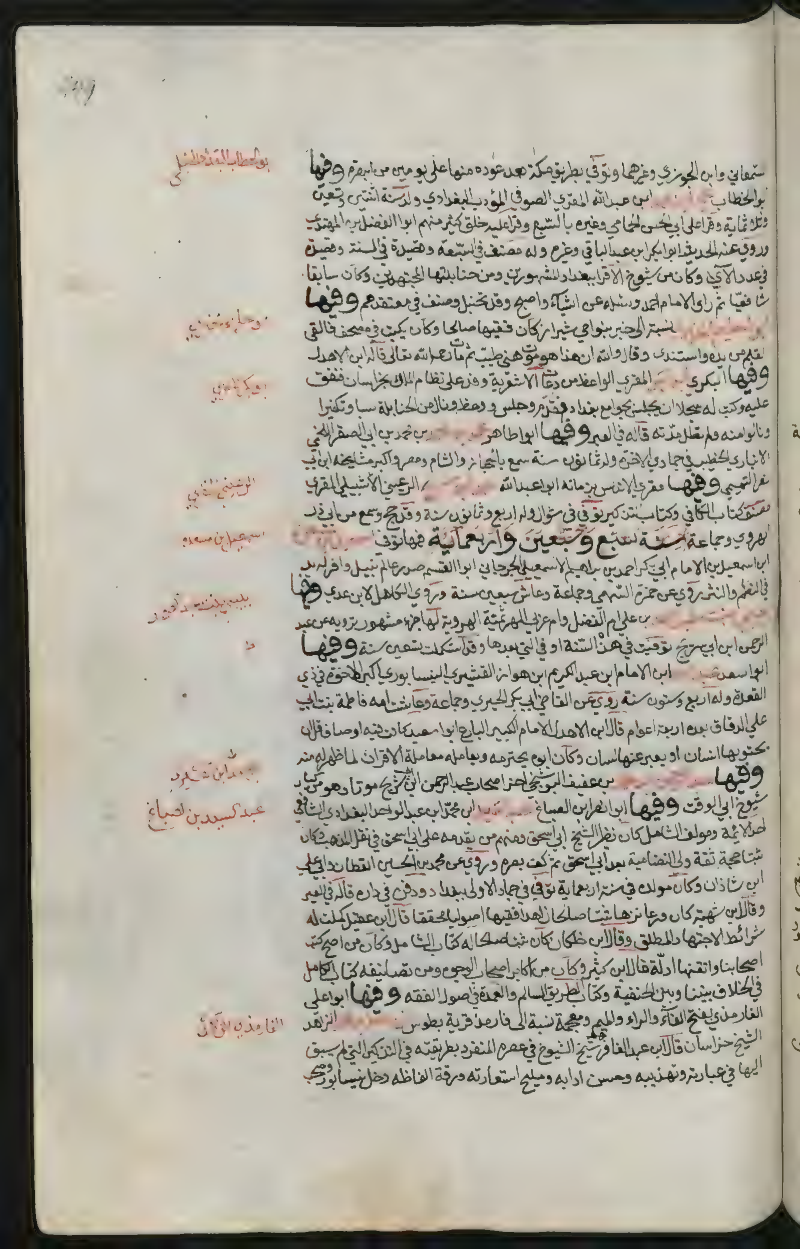 سمعاني وابن الجوزي وغيرهما وتوفي بطريق مكة بعد عوده منها على يومين من البصرة وفيها
بو الخطاب ابن عبد الله المقري الصوفي المؤدب البغدادي ولد سنة اثنتين وتسعين
وثلاثماية وقرا على ابي الحسن الحمامي وغيره بالسبع وقرا عليه خلق كثير منهم ابو الفضل بن المهتدي
وروى عنه الحديث ابو بكر ابن عبد الباقي وغيره وله مصنف في السبعة وقصيدة في السنة وقصيدة
في عدد الآي وكان من شيوخ الاقرا ببغداد المشهورين ومن حنابلتها المجتهدين وكان سابقا
شافعيا ثم راى الامام احمد وساله عن اشياء واصبح وقد تحنبل وصنف في معتقدهم وفيها
نسبة الى خبر بنواحي شيراز كان فقيها صالحا وكان يكتب في مصحف فالقى
القلم من يده واستند وقال والله ان هذا هو موت هني طيب ثم مات رحمه الله تعالى قاله ابن الاهدل
وفيها البكري المقري الواعظ من دعاة الاشعرية وفد على نظام الملك بخراسان فنفق
عليه وكتب له سجلا ان يجلس بجوامع بغداد فقدم وجلس ووعظ ونال من الحنابلة سبا وتكفيرا
ونالوا منه ولم تطل مدته قاله في العبر وفيها ابو طاهر بن محمد بن ابي الصقر اللخمي
الانباري الخطيب في جمادى الاخرة وله ثمانون سنة سمع بالحجاز والشام ومصر واكبر مشايخه ابن ابي
نصر التميمي وفيها مقري الاندلس في زمانه ابو عبد الله الرعيني الاشبيلي المقري
مصنف كتاب الكافي وكتاب التذكير توفي في شوال وله اربع وثمانون سنة وقد حج وسمع من ابي ذر
الهروي وجماعة سنة سبع وسبعين واربعماية فيها توفي
ابن اسمعيل بن الامام ابي بكر احمد بن ابراهيم الاسمعيلي الجرجاني ابو القاسم صدر عالم نبيل وافر له يد
في النظم والنثر روى عن حمزة السهمي وجماعة وعاش سبعين سنة وروى الكامل لابن عدي وفيها
بن علي ام الفضل وام عربي الهرثمية الهروية لها جزء مشهور ترويه عن عبد
الرحمن ابن ابي شريح توفيت في هذه السنة او في التي بعدها وقد استكملت تسعين سنة وفيها
ابو سعد ابن الامام ابن عبد الكريم ابن هوازن القشيري النيسابوري اكبر الاخوة في ذي
القعدة وله اربع وستون سنة روى عن القاضي ابي بكر الحيري وجماعة وعاشت امه فاطمة بنت ابي
علي الدقاق بعده اربعة اعوام قال ابن الاهدل الامام الكبير البارع ابو سعيد كان فيه اوصاف قل ان
يحتويها انسان او يعبر عنها لسان وكان ابوه يحترمه ويعامله معاملة الاقران لما ظهر له منه
وفيها بن عفيف البوشنجي اخر اصحاب عبد الرحمن ابي شريح موتا وهو من كبار
شيوخ ابي الوقت وفيها ابو نصر ابن الصباغ ابن محمد ابن عبد الواحد البغدادي الشافعي
احد الائمة ومولف الشامل كان نظير الشيخ ابي اسحق ومنهم من يقدمه على ابي اسحق في نقل المذهب وكان
ثبتا حجة ثقة ولي النظامية بعد ابي اسحق ثم كف بصره وروى عن محمد بن الحسين القطان وابي علي
ابن شاذان وكان مولده في سنة اربعماية توفي في جماد الاولى ببغداد ودفن في داره قاله في العبر
وقال ابن شهبة كان ورعا نزها ثبتا صالحا زاهدا فقيها اصوليا محققا قال ابن عقيل كملت له
شرائط الاجتهاد المطلق وقال ابن خلكان كان ثبتا صالحا له كتاب الشامل وكان من اصح كتب
اصحابنا واتقنها ادلة قال ابن كثير وكان من اكابر اصحاب الوجوه ومن تصانيفه كتاب الكامل
في الخلاف بيننا وبين الحنفية وكتاب الطريق السالم والعمدة في اصول الفقه وفيها ابو علي
الفارمذي بفتح الفاء والراء والميم ومعجمة نسبة الى فارمذ قرية بطوس الزاهد
الشيخ خراسان قال ابن عبد الغافر شيخ الشيوخ في عصره المنفرد بطريقته في التذكير التي لم يسبق
اليها في عبارته وتهذيبه وحسن ادابه ومليح استعارته ورقة الفاظه دخل نيسابور وصحب
الرعيني المقري
اسمعيل بن مسعده
عبد السيد بن الصباغ